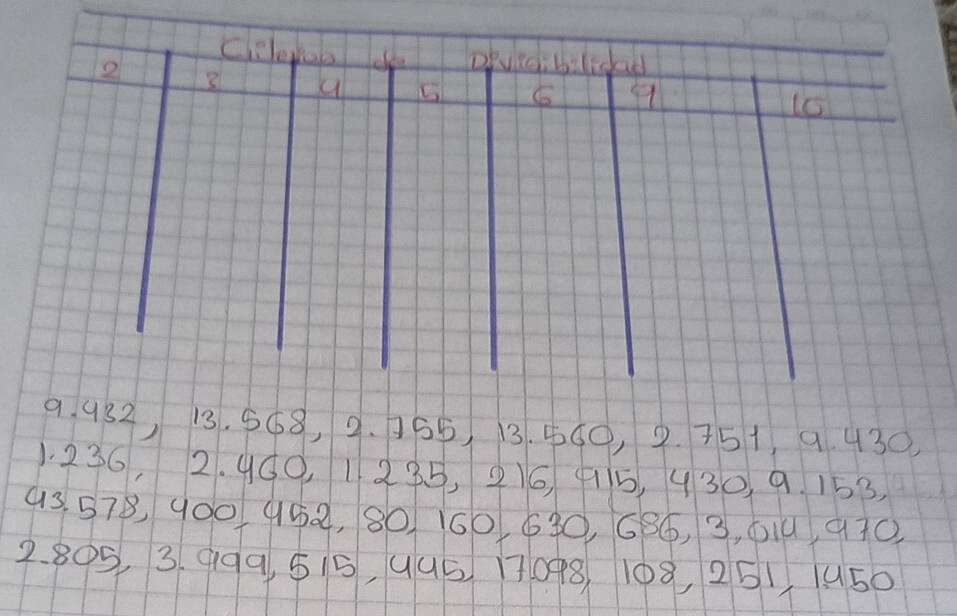 Criterios de Divisibilidad
2 3 4 5 6 9 10
9.432, 13.568, 2.755, 13.560, 2.751, 9.430,
1.236, 2.460, 1.235, 216, 915, 430, 9.153,
43.578, 400, 452, 80, 160, 630, 686, 3,014, 970,
2.805, 3.999, 515, 445, 17.098, 108, 251, 1450